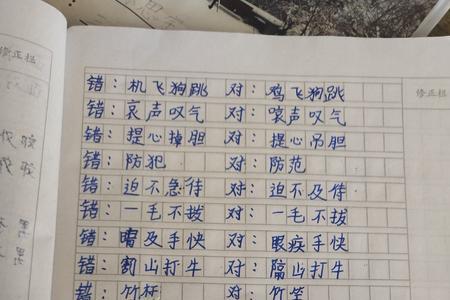 修正栏
修正栏
错：机飞狗跳 对：鸡飞狗跳
错：哀声叹气 对：唉声叹气
错：提心掉胆 对：提心吊胆
错：防犯 对：防范
错：迫不急待 对：迫不及待
错：一毛不拨 对：一毛不拔
错：及手快 对：眼疾手快
错：割山打牛 对：隔山打牛
错：竹杆 对：竹竿